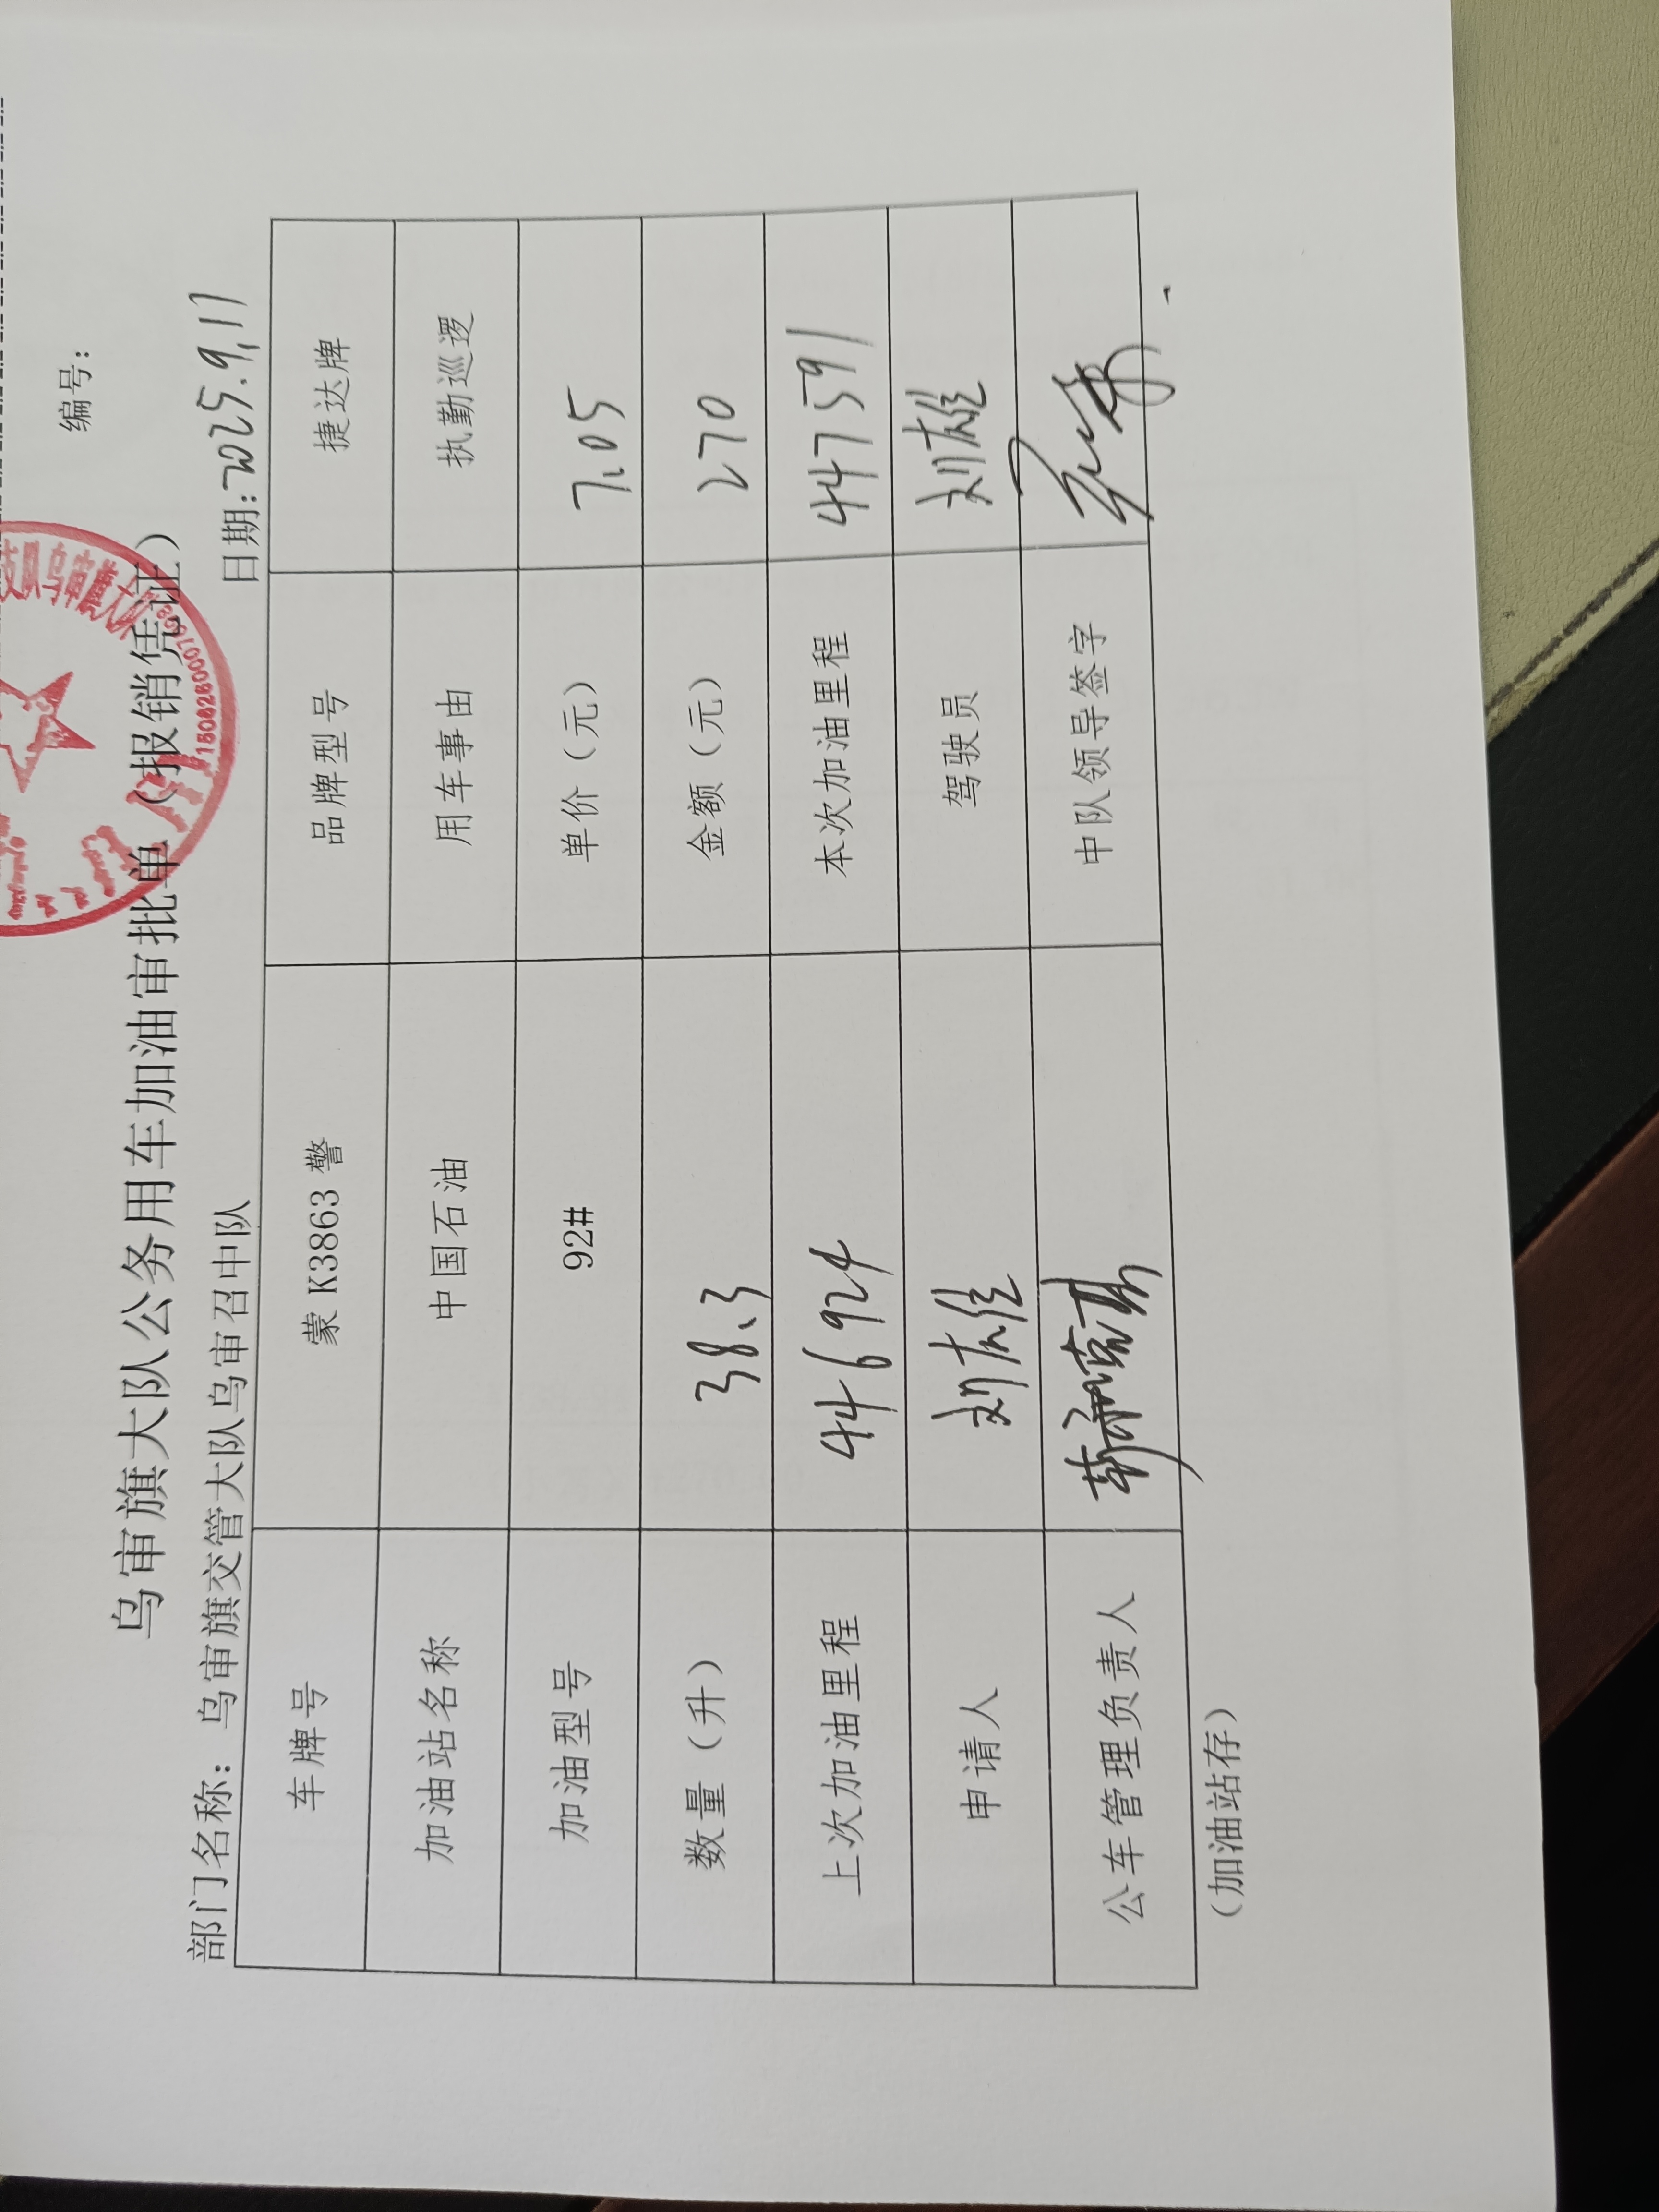 编号：
乌审旗大队公务用车加油审批单（报销凭证）
部门名称：乌审旗交管大队乌审召中队 日期：2025.9.17
车牌号 蒙 K3863 警 品牌型号 捷达牌
加油站名称 中国石油 用车事由 执勤巡逻
加油型号 92# 单价（元） 7.05
数量（升） 38.3 金额（元） 270
上次加油里程 446924 本次加油里程 447591
申请人 刘 驾驶员 刘
公车管理负责人 中队领导签字
（加油站存）